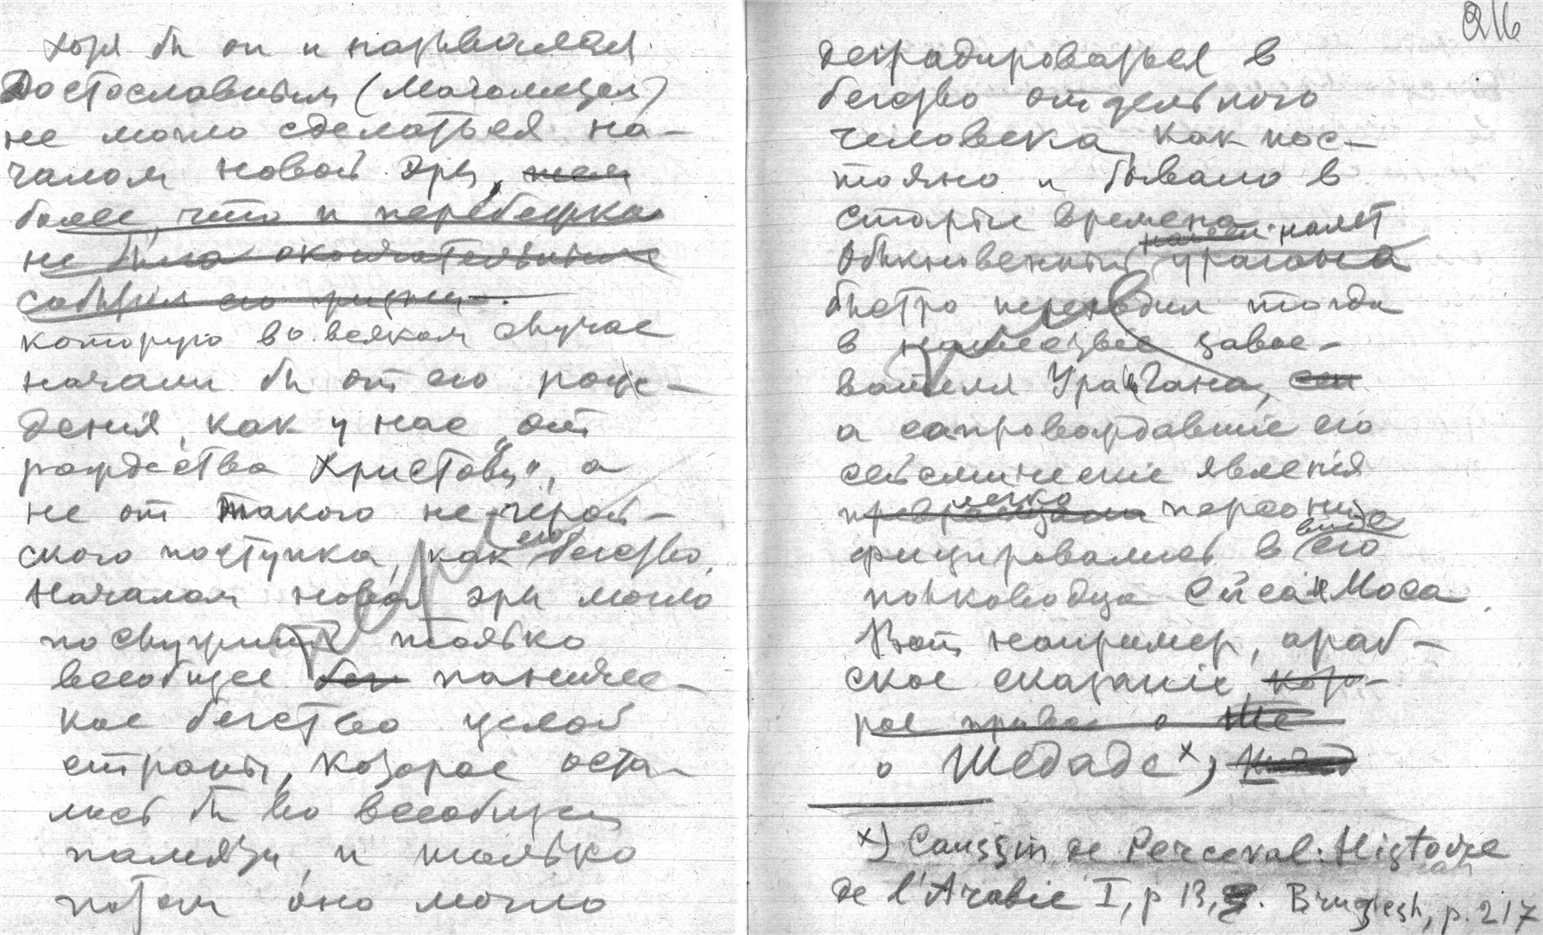 хотя бы он и назывался
Достославным (Магомедом)
не могло сделаться на-
чалом новой эры, тем
более, что и перебежка
не была окончательным
событием его жизни.
которую во всяком случае
начали бы от его рож-
дения, как у нас „от
рождества Христова", а
не от такого не герой-
ского поступка, как его бегство.
Началом новой эры могло
послужить только
всеобщее паничес-
кое бегство целой
страны, которое оста-
лось бы во всеобщей
памяти и только
потом оно могло
216
деградироваться в
бегство отдельного
человека, как пос-
тоянно и бывало в
старые времена. налет
Обыкновенный урагана
быстро переходил тогда
в нашествие завое-
вателя Урагана,
а сапровождавшие его
сейсмическіе явленія
превращали легко персони-
фицировались в виде его
полководца Ейса и Моса.
Вот, например, араб-
ское сказаніе, кото-
рое
о Шедаде x),
x) Caussin de Perceval: Histoire
de l'Arabie I, p 13, . Brugsch, p. 217